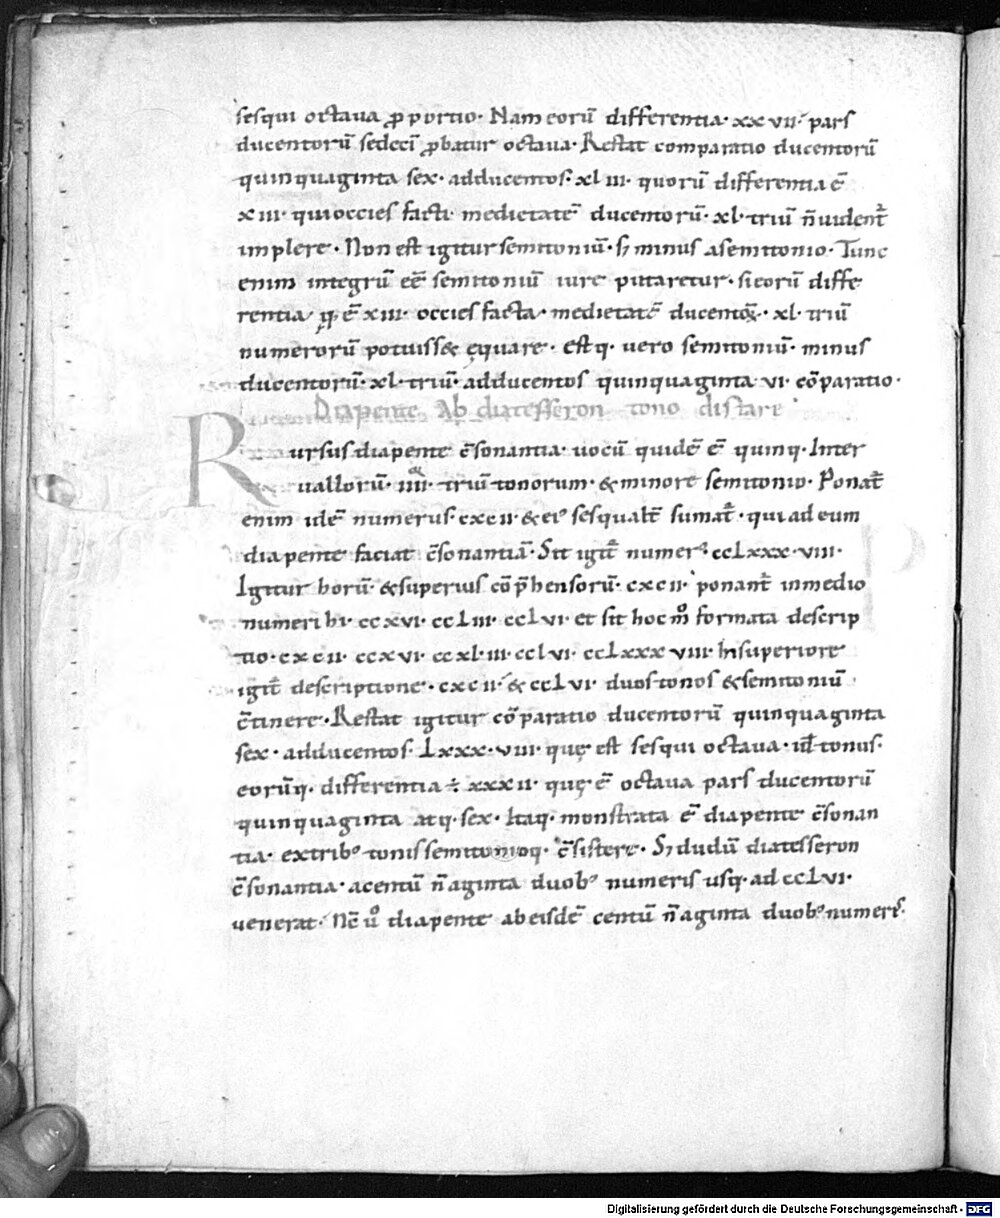 sesqui octava ꝓportio· Nam eorū differentia· xxvii· pars
ducentorū sedecī ꝓbatur octava· Restat comparatio ducentorū
quinquaginta sex· adducentos· xliii· quorū differentia ē
xiii· qui occies facti medietatē ducentorū· xl· triū ñ uident᷑
implere· Non est igitur semitoniū· sꝫ minus a semitonio· Tunc
enim integrū eē semitoniū iure putaretur· si eorū diffe
rentia q̨ ē xiii· occies facta· medietatē ducentoꝝ· xl· triū
numerorū potuiss& ęquare· Estq· uero semitoniū· minus
ducentorū· xl· triū· adducentos quinquaginta vi· cōparatio·
Diapente Ab diatesseron tono distare
Rursus diapente c̄sonantia· uocū quidē ē quinq· Inter
uallorū· iiii· triū tonorum· & minore semitonio· Ponat᷑
enim idē numerus· cxcii· & ei᷒ sesqualt̄ sumat᷑· qui ad eum
diapente faciat c̄sonantiā· Sit igit᷑ numer᷒ cclxxx·viii·
Igitur horū· & superius cōp̄hensorū· cxcii· ponant᷑ in medio
numeri hi· ccxvi· cclııı· cclvi· et sit hoc mͦ formata descrip
tio· cxcii· ccxvi· ccxl·iii· cclvi· cclxxxviii· In superiore
igit᷑ descriptione· cxcii· & cclvi· duos tonos & semitoniū
c̄tinere· Restat igitur cōparatio ducentorū quinquaginta
sex· adducentos· lxxx·viii· quę est sesqui octava· id̄ tonus·
eorūq· differentia ÷ xxxii· quę ē octava pars ducentorū
quinquaginta atq· sex· Itaq· monstrata ē diapente c̄sonan
tia· ex trib᷒ tonis semitonioq· c̄sistere· Sꝫ dudū diatesseron
c̄sonantia· a centū ñaginta duob᷒ numeris usq· ad cclvi·
venerat· Nc̄ uͦ diapente ab eisdē centū ñaginta duob᷒ numer᷒·